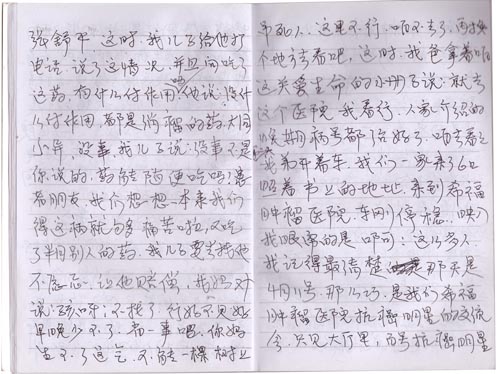 张舒平，这时，我儿子给他打
电话说了这情况，并且问吃了
这药，有什么付作用，他说：没什
么付作用，都是消瘤的药，大同
小异，没事，我儿子说：没事不是
你说的，药能随便吃吗？亲
朋友，我们想一想，本来我们
得这病就多痛苦啦，又吃
了半月别人的药，我儿子要去找他
不愿意，让他赔偿，我妈对
说：孩呀，不找了，行好不见好
早晚少不了，有一事吧，你妈
生不了这气，不能一棵树上
吊死人，这里不行，咱不去了，再找
个地方看吧，这时，我爸拿着
这关爱生命的小册子说：就去
这个医院，我看行，人家介绍的
晚期病号都治好了，咱去看
我弟开着车，我们一家来了6口
照着书上的地址，来到希福
肿瘤医院，车刚停稳，映入
我眼帘的是 叩可：这么多人
我记得最清楚 那天是
4月11号，那么巧，是我们希福
肿瘤医院抗癌明星的交流
会，只见大厅里，百号抗癌明星